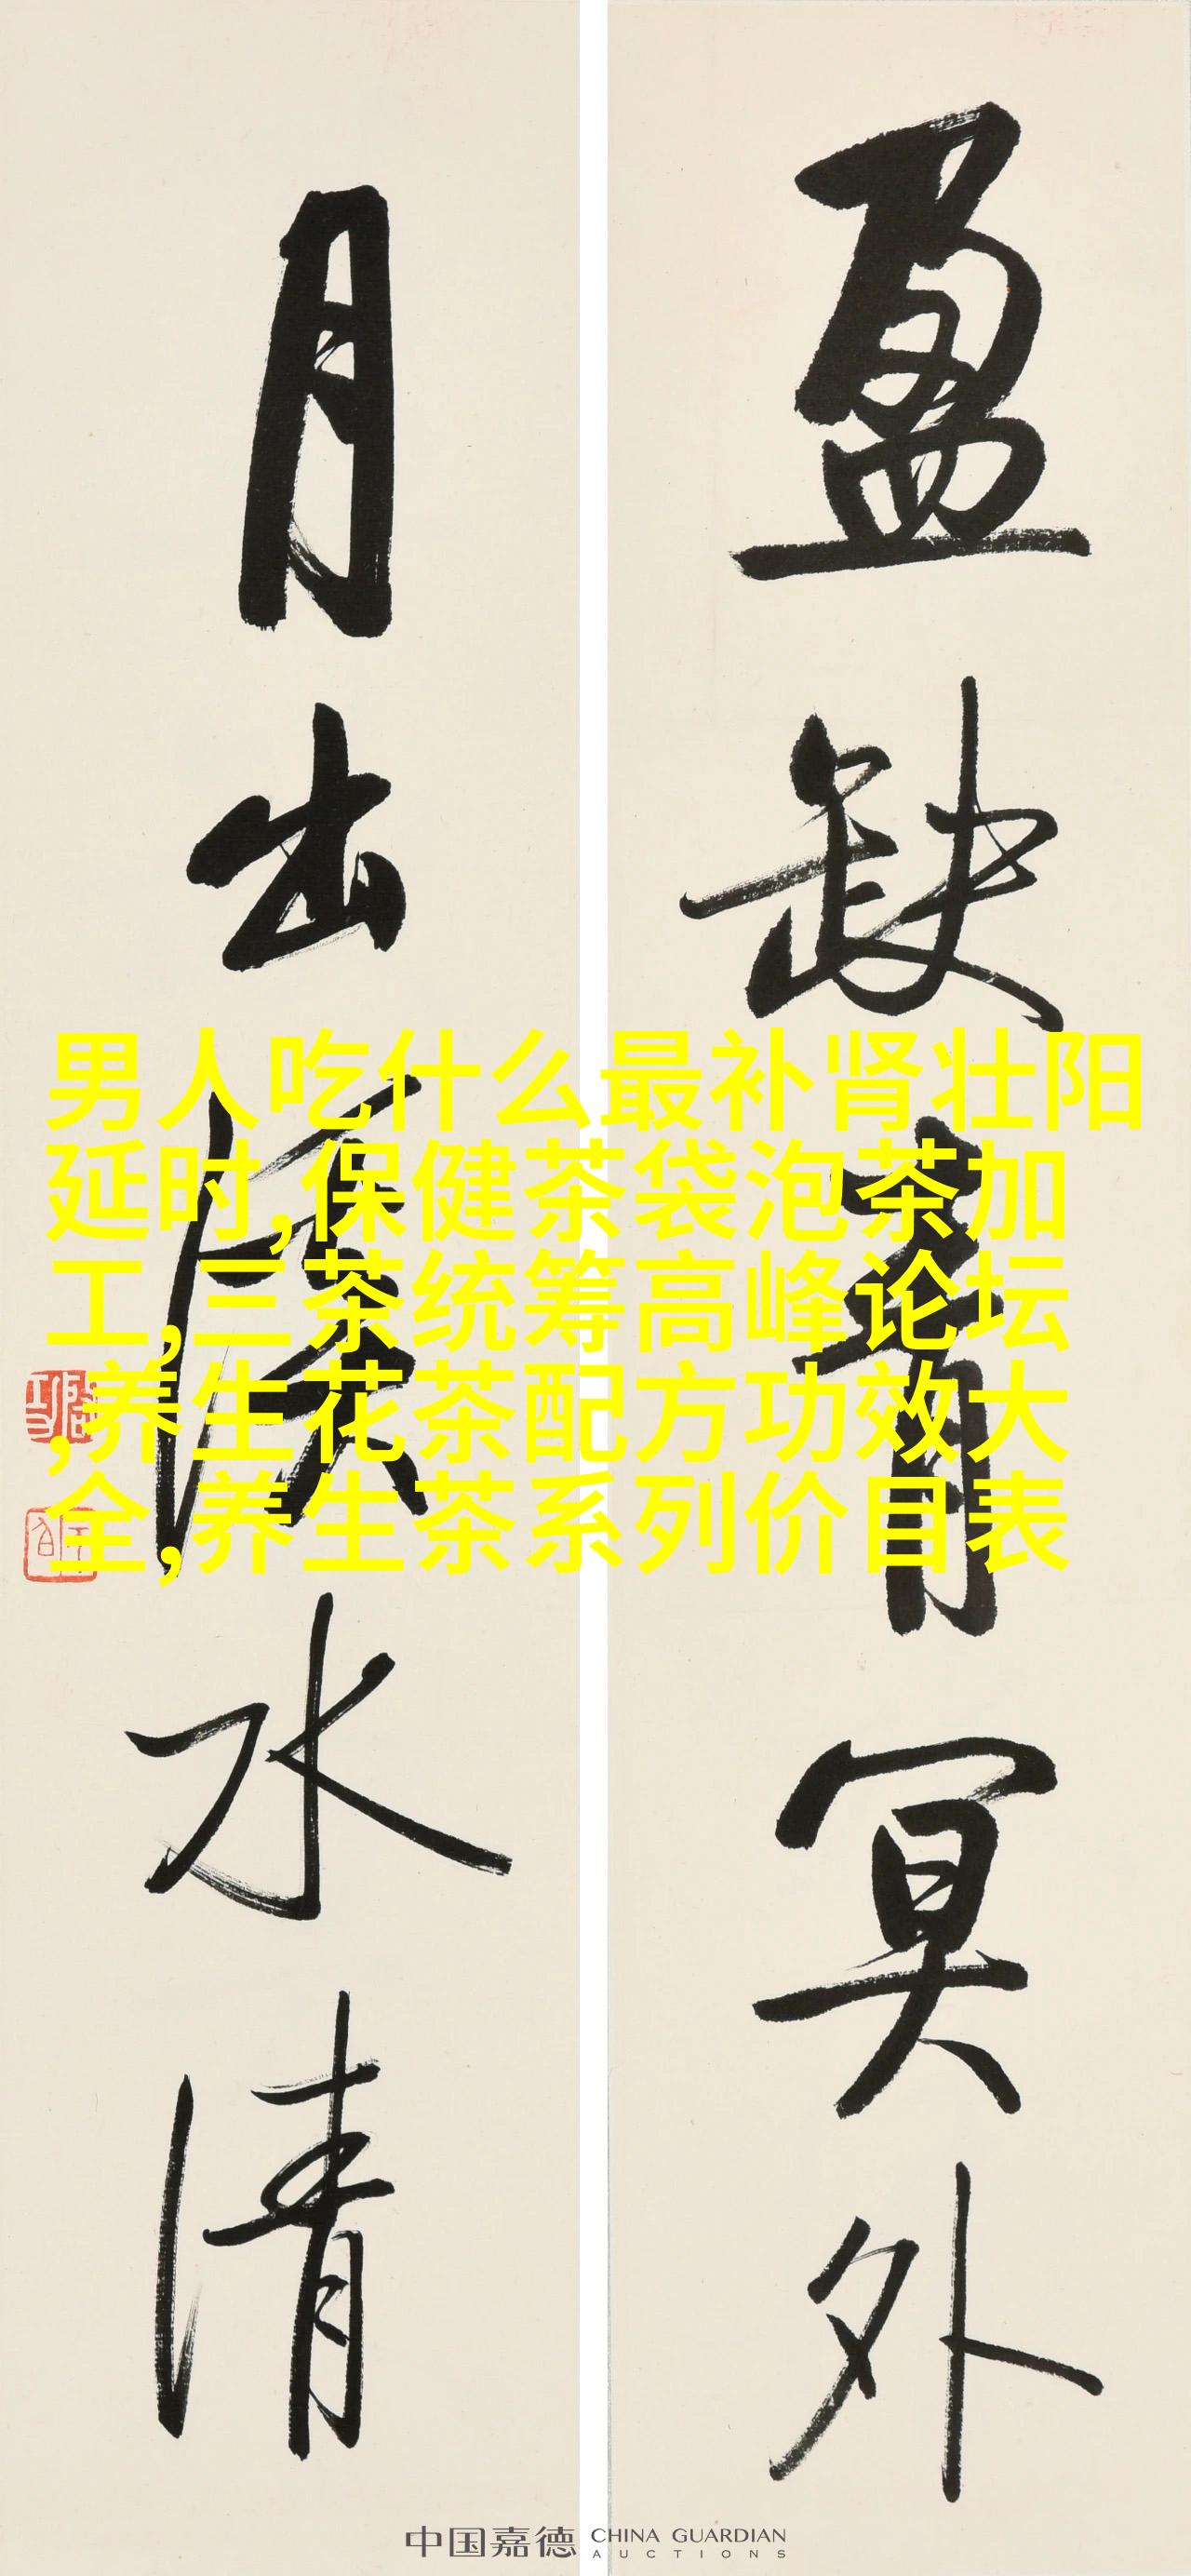 盈缺青冥外
月出溪水清
男人吃什么最补肾壮阳
延时,保健茶袋泡茶加
工,三茶统筹高峰论坛
,养生花茶配方功效大
全,养生茶系列价目表
中国嘉德 CHINA GUARDIAN
AUCTIONS